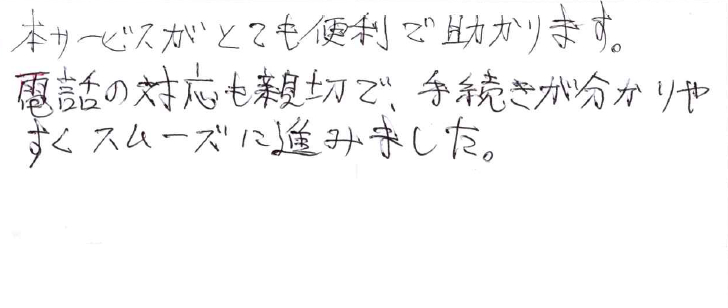 本サービスがとても便利で助かります。
電話の対応も親切で、手続きが分かりや
すくスムーズに進みました。